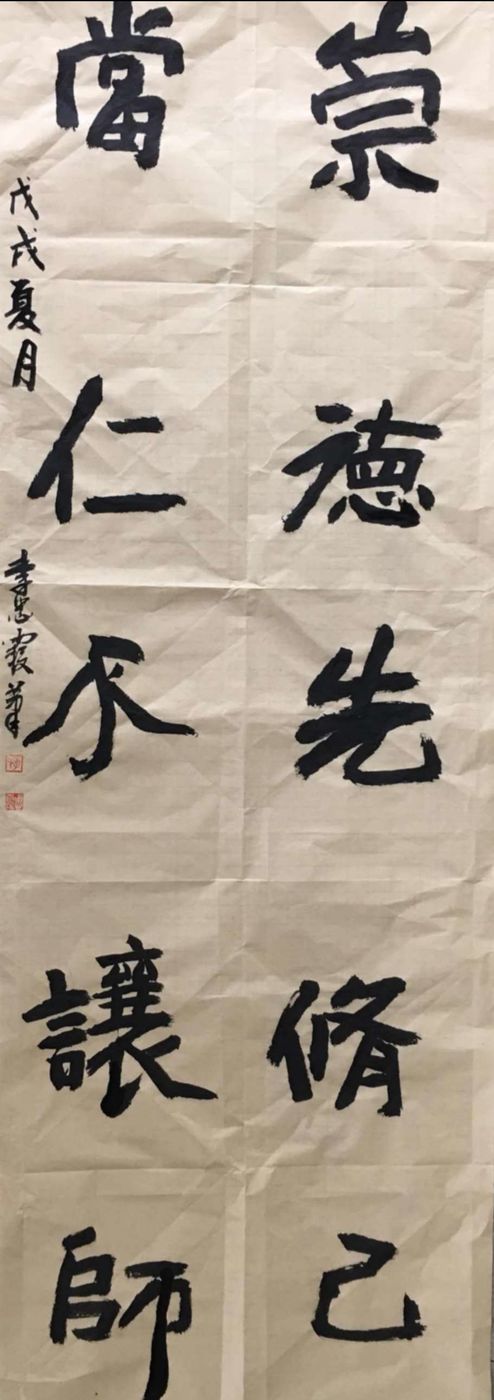 崇德先脩己
當仁不讓師
戊戌夏月
李忠霞筆